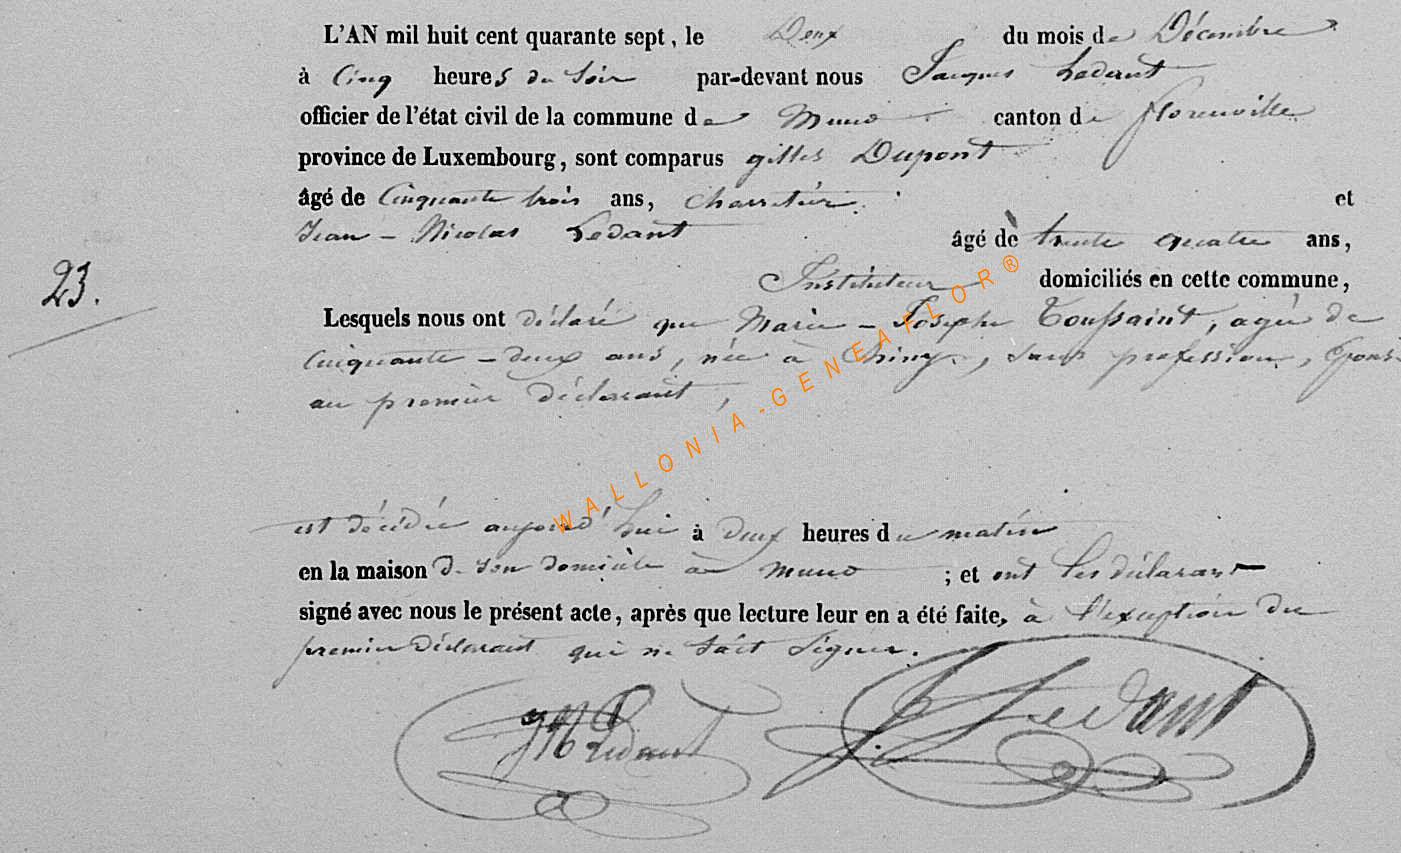 L'AN mil huit cent quarante sept, le Deux du mois de Décembre
à Cinq heures du Soir par-devant nous Jacques Ledant
officier de l'état civil de la commune de Muno canton de florenville
province de Luxembourg, sont comparus gilles Dupont
âgé de Cinquante trois ans, Charretier. et
Jean - Nicolas Ledant âgé de trente quatre ans,
Instituteur domiciliés en cette commune,
23.
Lesquels nous ont déclaré que Marie - Josephe Toussaint, agée de
Cinquante - deux ans, née à Chiny, sans profession, Epouse
au premier déclarant,
est décédée aujourd'hui à deux heures du matin
en la maison de son domicile à muno ; et ont les déclarant
signé avec nous le présent acte, après que lecture leur en a été faite, à l'exception du
premier déclarant qui ne sait signer.
JN Ledant J. Ledant
WALLONIA-GENEAFLOR®